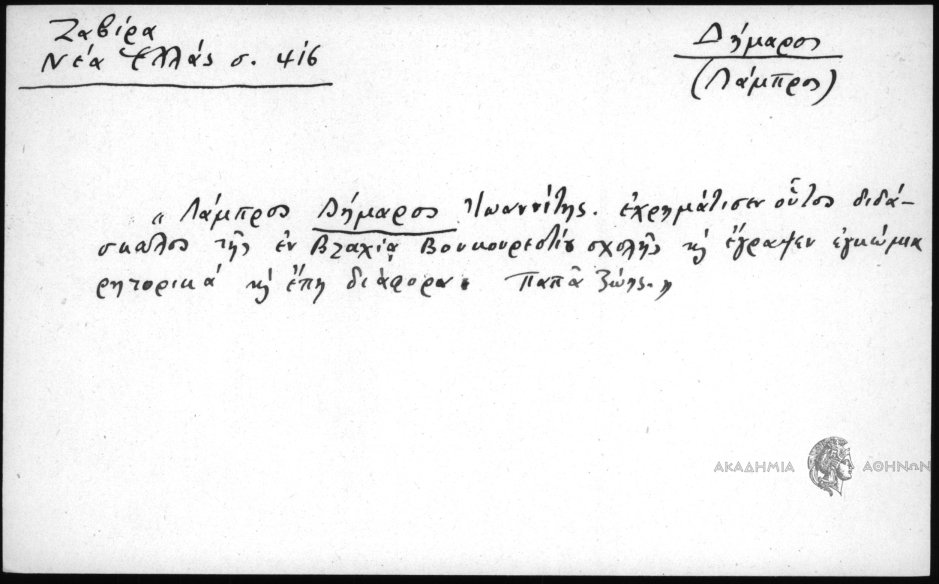 Ζαβίρα
Νέα Ἑλλάς σ. 416
Δήμαρος
(Λάμπρος)
« Λάμπρος Δήμαρος Ἰωαννίτης. ἐχρημάτισεν οὗτος διδά-
σκαλος τῆς ἐν Βλαχίᾳ Βουκουρεστίου σχολῆς κ̀ ἔγραψεν ἐγκώμια
ρητορικά κ̀ ἔπη διάφορα. Παπᾶ Ζώης. »
ΑΚΑΔΗΜΙΑ ΑΘΗΝΩΝ